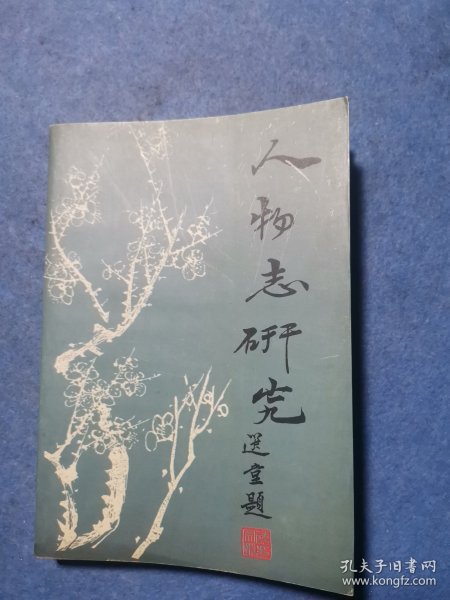 人物志研究
選堂題
孔夫子旧书网
www.kongfz.com